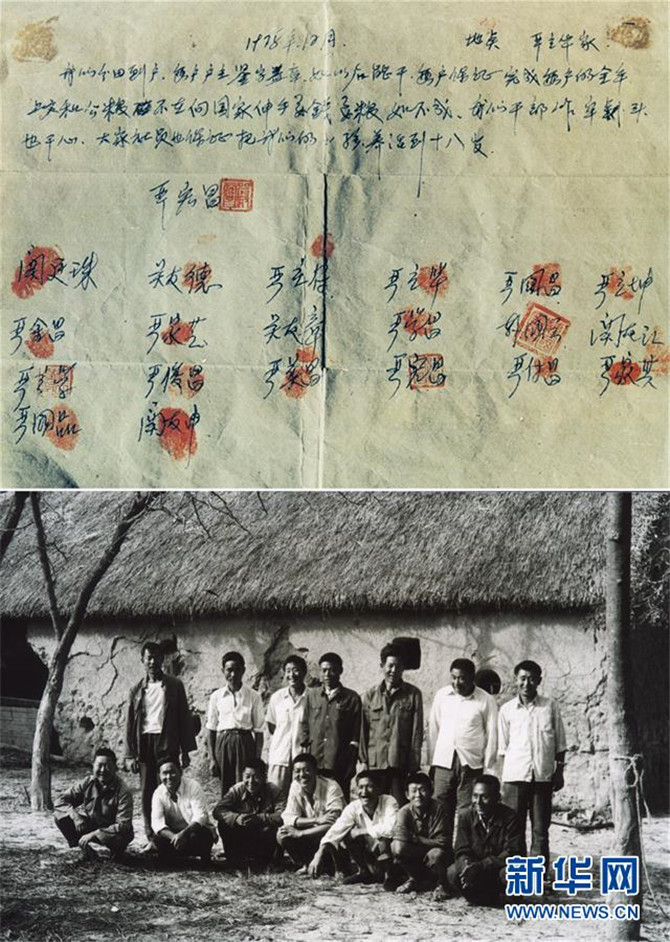 1978年12月. 地点 严立华家.
我们分田到户,每户户主签字盖章,如以后能干,每户保证完成每户的全年
上交和公粮 不在向国家伸手要钱要粮 如不成,我们干部作牢剎头
也干心,大家社员也保证把我们的小孩养活到十八岁.
严宏昌
关廷珠 关友德 严立符 严立华 严国昌 严立坤
严金昌 严家芝 关友章 严学昌 韩国云 关友江
严立学 严俊昌 严美昌 严宏昌 严付昌 严家其
严国品 关友申
新华网
WWW.NEWS.CN